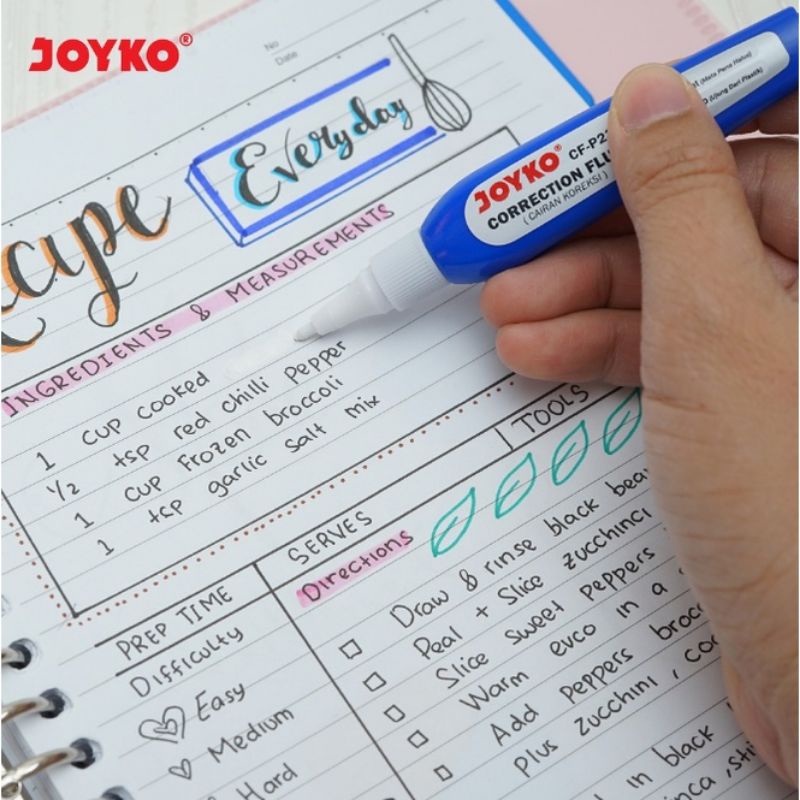 JOYKO®
No
Date
Everyday
JOYKO®
CORRECTION FLU
(CAIRAN KOREKSI)
(Mata Pena Halus)
(Ujung Dari Plastik)
INGREDIENTS & MEASUREMENTS
1 cup cooked
1/2 tsp red chilli pepper
1 cup frozen broccoli
1 tsp garlic salt mix
TOOLS
SERVES
PREP TIME
Directions
Draw & rinse black bea
Peal + Slice zucchinci
Slice sweet peppers
Warm evco in a
Add peppers broc
plus zucchini, co
d in black
inca, sti
Difficulty
Easy
Medium
Hard